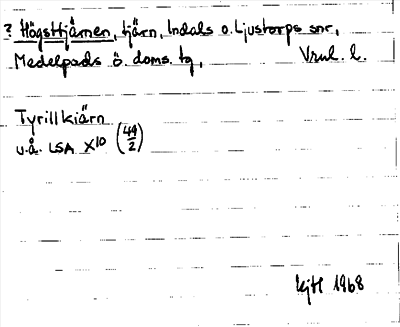 ? Högsttjärnen, tjärn, Indals o. Ljustorps snr,
Medelpads ö. doms. tg, Vrnl. l.
Tyrillkiärn
u.å. LSA X10 (49/2)
kjH 1968